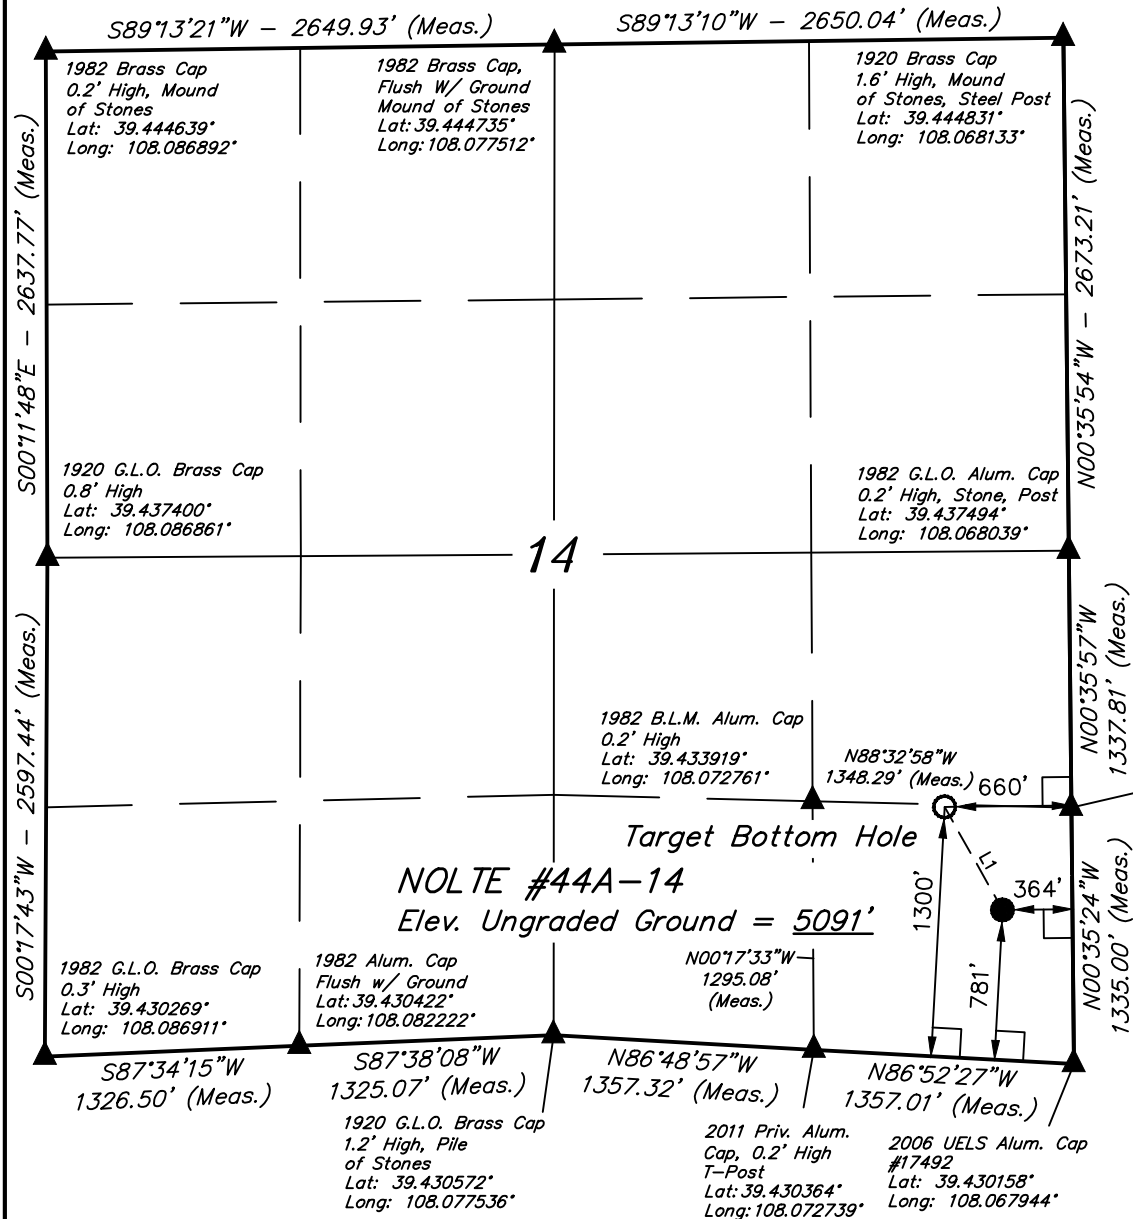 S89°13'21"W - 2649.93' (Meas.)
S89°13'10"W - 2650.04' (Meas.)
1982 Brass Cap
0.2' High, Mound
of Stones
Lat: 39.444639°
Long: 108.086892°
1982 Brass Cap,
Flush W/ Ground
Mound of Stones
Lat: 39.444735°
Long: 108.077512°
1920 Brass Cap
1.6' High, Mound
of Stones, Steel Post
Lat: 39.444831°
Long: 108.068133°
S00°11'48"E - 2637.77' (Meas.)
N00°35'54"W - 2673.21' (Meas.)
1920 G.L.O. Brass Cap
0.8' High
Lat: 39.437400°
Long: 108.086861°
1982 G.L.O. Alum. Cap
0.2' High, Stone, Post
Lat: 39.437494°
Long: 108.068039°
14
S00°17'43"W - 2597.44' (Meas.)
N00°35'57"W
1337.81' (Meas.)
1982 B.L.M. Alum. Cap
0.2' High
Lat: 39.433919°
Long: 108.072761°
N88°32'58"W
1348.29' (Meas.)
660'
Target Bottom Hole
L1
NOLTE #44A-14
Elev. Ungraded Ground = 5091'
1300'
364'
781'
N00°35'24"W
1335.00' (Meas.)
N00°17'33"W
1295.08'
(Meas.)
1982 G.L.O. Brass Cap
0.3' High
Lat: 39.430269°
Long: 108.086911°
1982 Alum. Cap
Flush w/ Ground
Lat: 39.430422°
Long: 108.082222°
S87°34'15"W
1326.50' (Meas.)
S87°38'08"W
1325.07' (Meas.)
N86°48'57"W
1357.32' (Meas.)
N86°52'27"W
1357.01' (Meas.)
1920 G.L.O. Brass Cap
1.2' High, Pile
of Stones
Lat: 39.430572°
Long: 108.077536°
2011 Priv. Alum.
Cap, 0.2' High
T-Post
Lat: 39.430364°
Long: 108.072739°
2006 UELS Alum. Cap
#17492
Lat: 39.430158°
Long: 108.067944°